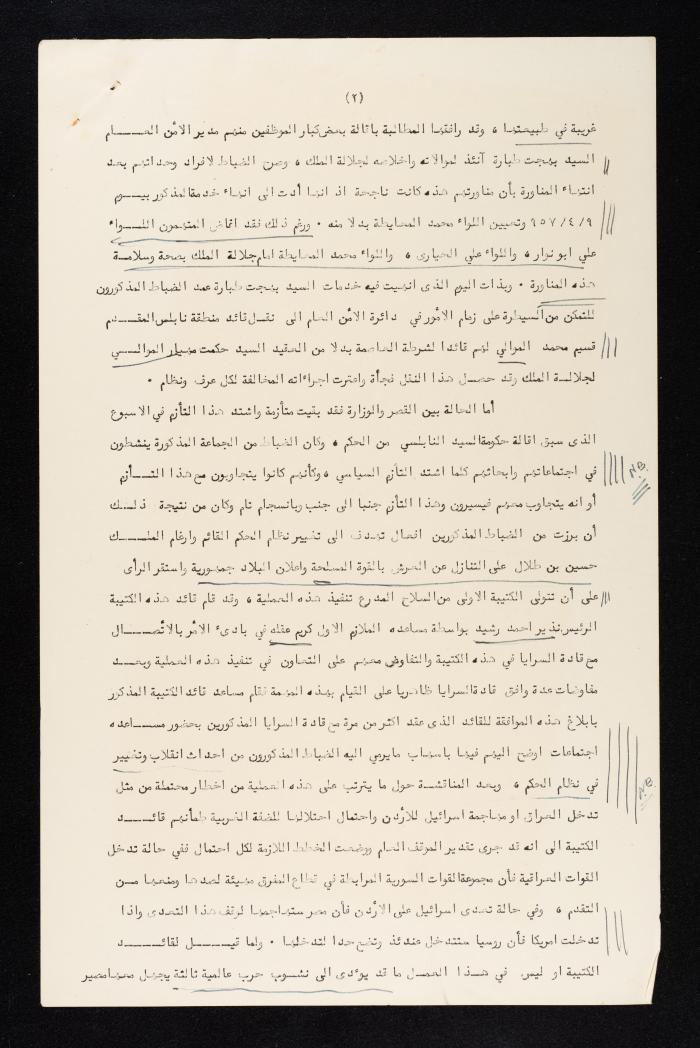 (٢)
غريبة في طبيعتها ، وقد رافقتها المطالبة باقالة بعض كبار الموظفين منهم مدير الأمن العـــــام
السيد بهجت طبارة آنئذ لموالاته واخلاصه لجلالة الملك ، وصرح الضباط لافراد وحداتهم بعد
انتهاء المناورة بأن مناورتهم هذه كانت ناجحة اذ انها أدت الى انهاء خدمة المذكور بيـــوم
٩/٤/٩٥٧ وتعيين اللواء محمد المعايطة بدلا منه ٠ ورغم ذلك فقد المتهمون اللـــواء
علي ابو نوار ، واللواء علي الحيارى ، واللواء محمد المعايطة امام جلالة الملك بصحة وسلامــة
هذه المناورة ٠ وبذات اليوم الذى انهيت فيه خدمات السيد بهجت طبارة عمد الضباط المذكورون
للتمكن من السيطرة على زمام الأمور في دائرة الأمن العام الى نقـل قائد منطقة نابلس المقـــدم
قسيم محمد الموالي لهم قائدا لشرطة العاصمة بدلا من العقيد السيد حكمت مهيار الموالـــي
لجلالـــة الملك وقد حصــل هذا النقل فجأة واعتبرت اجراءاته المخالفة لكل عرف ونظام ٠
أما الحالة بين القصر والوزارة فقد بقيت متأزمة واشتد هــذا التأزم في الاسبوع
الذى سبق اقالة حكومة السيد النابلسي من الحكم ، وكان الضباط من الجماعة المذكورة ينشطون
في اجتماعاتهم وابحاثهم كلما اشتد التأزم السياسي ، وكأنهم كانوا يتجاوبون مع هذا التـــأزم
N.B.
أو انه يتجاوب معهم فيسيرون وهذا التأزم جنبا الى جنب وبانسجام تام وكان من نتيجة ذلــك
أن برزت من الضباط المذكورين افعال تهدف الى تغيير نظام الحكم القائم وارغام الملـــك
حسين بن طلال على التنازل عن العرش بالقوة المسلحة واعلان البلاد جمهورية واستقر الرأى
على أن تتولى الكتيبة الاولى من السلاح المدرع تنفيذ هــذه العملية ، وقد قام قائد هذه الكتيبة
الرئيس نذير احمد رشيد بواسطة مساعده الملازم الاول كريم عقله في بادىء الأمر بالأتصــــال
مع قادة السرايا في هذه الكتيبة والتفاوض معهم على التعاون في تنفيذ هذه العملية وبعــد
مفاوضات عدة وافق قادة السرايا ظاهريا على القيام بهذه المهمة فقام مساعد قائد الكتيبة المذكور
بابلاغ هذه الموافقة للقائد الذى عقد اكثر من مرة مع قادة السرايا المذكورين بحضور مســـاعده
اجتماعات اوضح اليهم فيها باسهاب مايرمي اليه الضباط المذكورون من احداث انقلاب وتغيير
في نظام الحكم ، وبعد المناقشـة حول ما يترتب على هذه العملية من اخطار محتملة من مثل
N.B.
تدخل العراق او مهاجمة اسرائيل للأردن واحتمال احتلالها للضفة الغربية طمأنهم قائـــد
الكتيبة الى انه قد جرى تقدير الموقف العام ووضعت الخطط اللازمة لكل احتمال ففي حالة تدخل
القوات العراقية فأن مجموعة القوات السورية المرابطة في قطاع المفرق مهيئة لصدها ومنعها مـــن
التقدم ، وفي حالة تعدى اسرائيل على الأردن فأن مصر ستهاجمها لوقف هذا التعدى واذا
تدخلت امريكا فأن روسيا ستتدخل عندئذ وتضع حدا لتدخلها ٠ ولما قيــــل لقائـــد
الكتيبة او ليس في هــذا العمــل ما قد يؤدى الى نشوب حرب عالمية ثالثة يجهل معها مصير